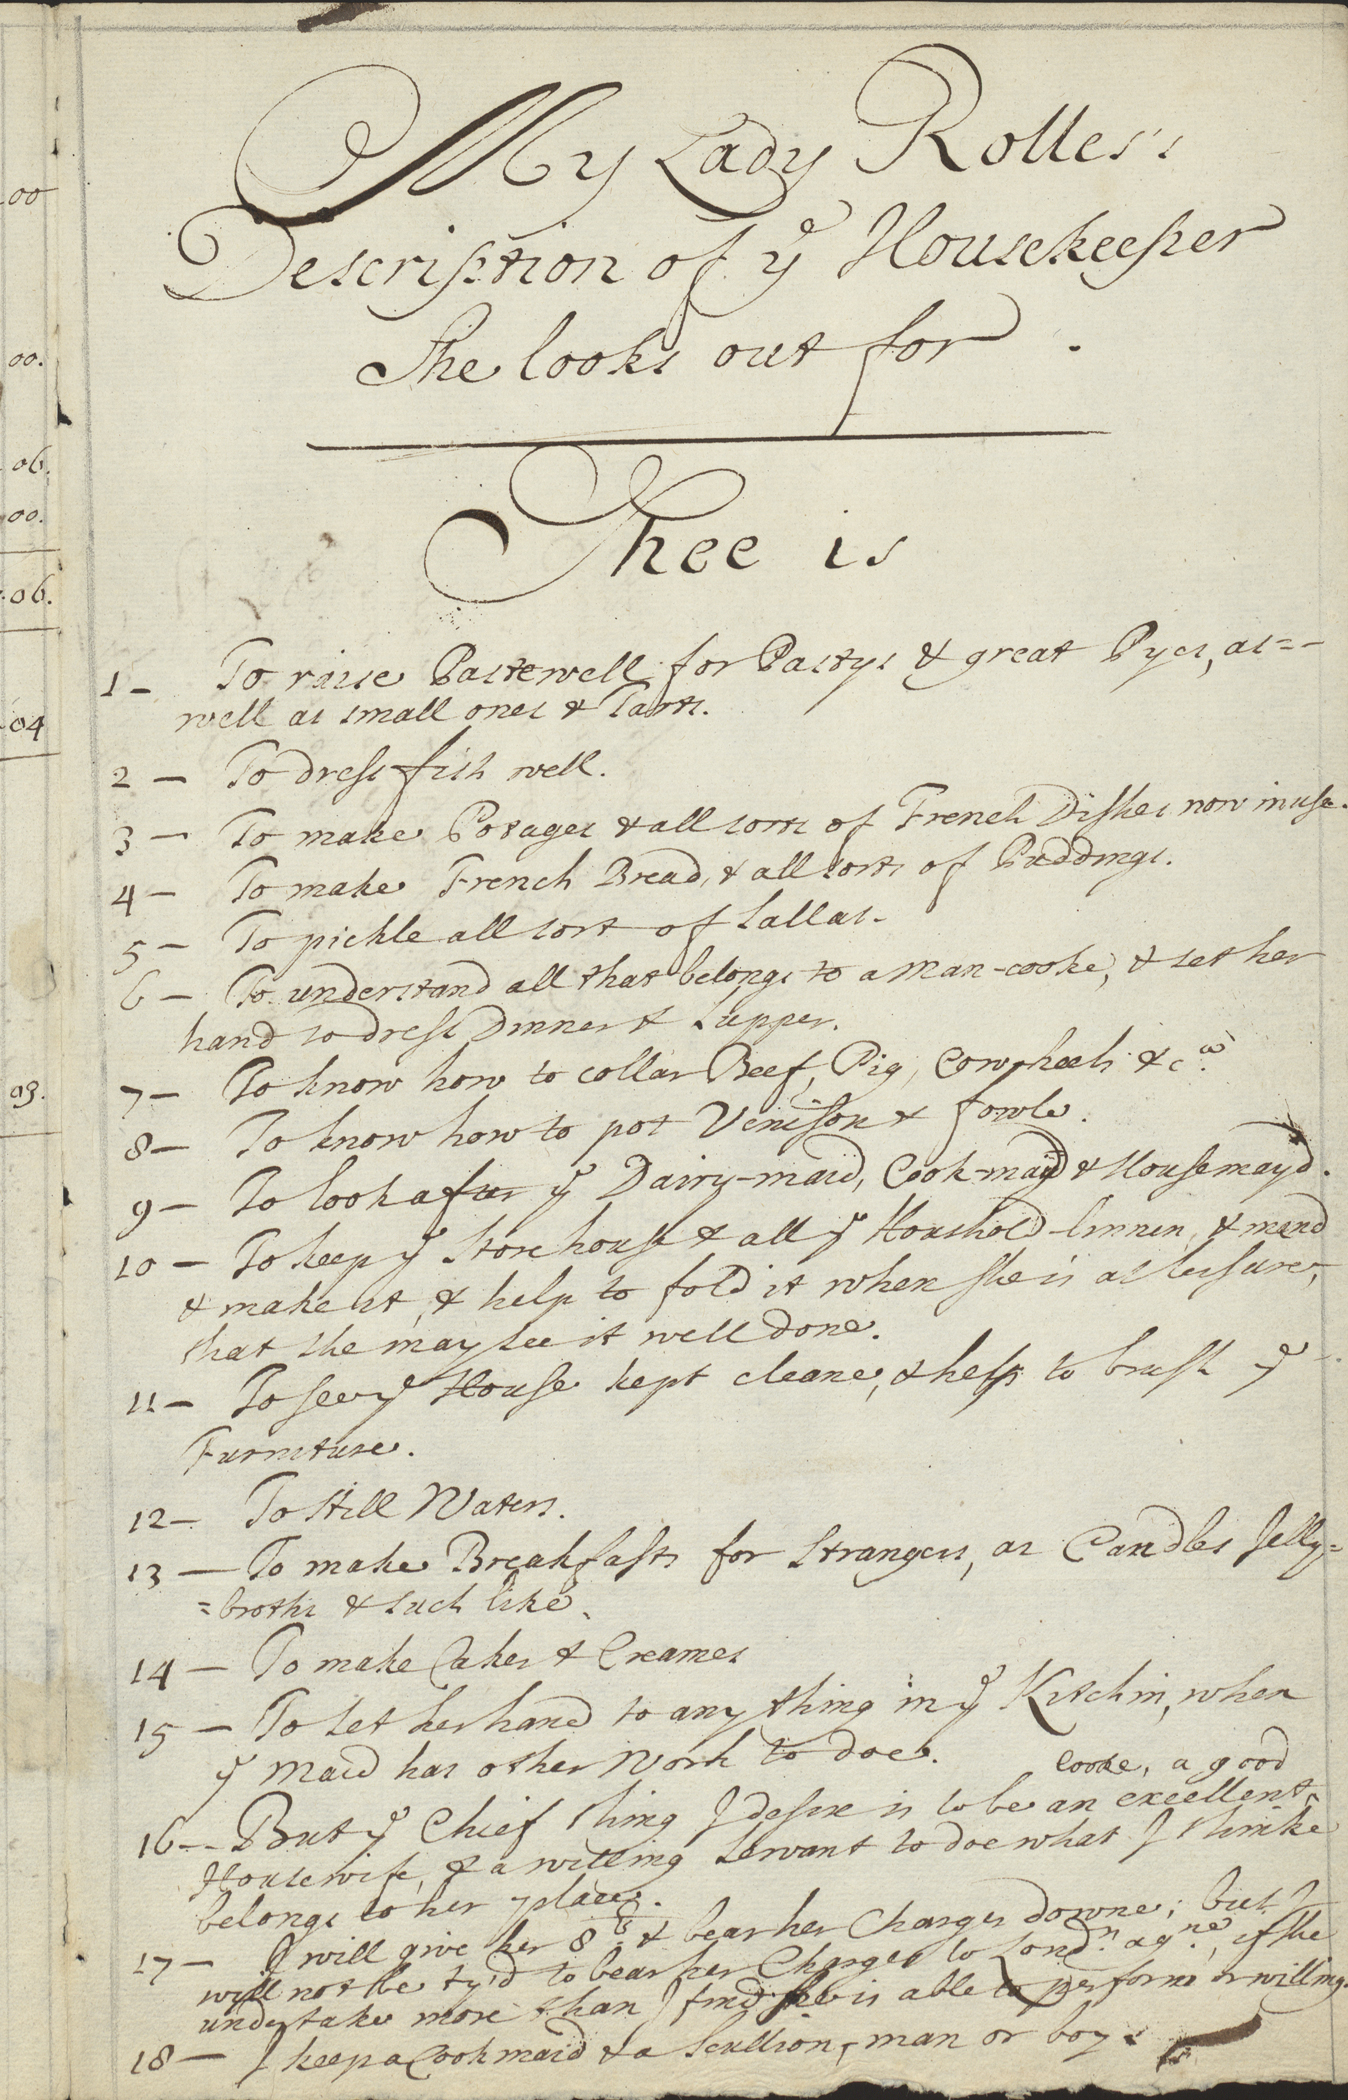 00
00.
06.
00.
06.
04
03.
My Lady Rolles's
Description of yᵉ Housekeeper
She looks out for.
Shee is
1 - To raise Paste well for Pastys & great Pyes, as =-
well as small ones & Tarts.
2 - To dress fish well.
3 - To make Potages & all sorts of French Dishes now in use.
4 - To make French Bread, & all sorts of Puddings.
5 - To pickle all sort of Sallas.
6 - To understand all that belongs to a Man-cooke, & set her
hand to dress Dinner & Supper.
7 - To know how to collar Beef, Pig, Cow-heels &cᵃ.
8 - To know how to pot Venison & fowle.
9 - To look after yᵉ Dairy-maid, Cook-mayd & Housemayd.
10 - To keep yᵉ Storehouse & all yᵉ Houshold-linnen, & mend
& make it, & help to fold it when she is at leisure,
that she may see it well done.
11 - To see yᵉ House kept cleane, & help to brush yᵉ
Furniture.
12 - To still Waters.
13 - To make Breakfasts for Strangers, as Caudles Jelly=
=broths & such like.
14 - To make Cakes & Creames
15 - To set her hand to any thing in yᵉ Kitchin, when
yᵉ Maid has other Work to doe.
cooke, a good
16 - But yᵉ Chief thing I desire is to be an excellent
Housewife, & a willing Servant to doe what I thinke
belongs to her place.
17 - I will give her 8 & bear her Charges downe; but I
will not be ty'd to bear her Charges to Londⁿ. agⁿᵉ, if she
undertake more than I find she is able to perform or willing.
18 - I keep a Cookmaid & a Scullion, man or boy.